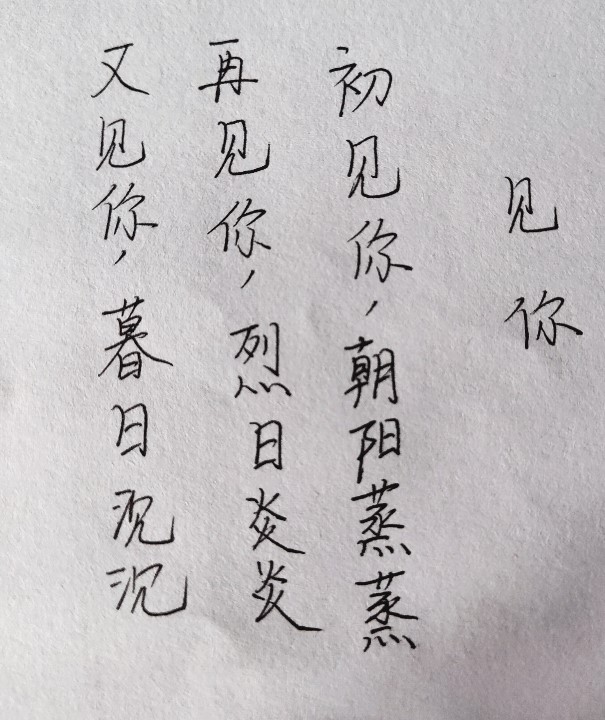 见你
初见你，朝阳蒸蒸
再见你，烈日炎炎
又见你，暮日沉沉